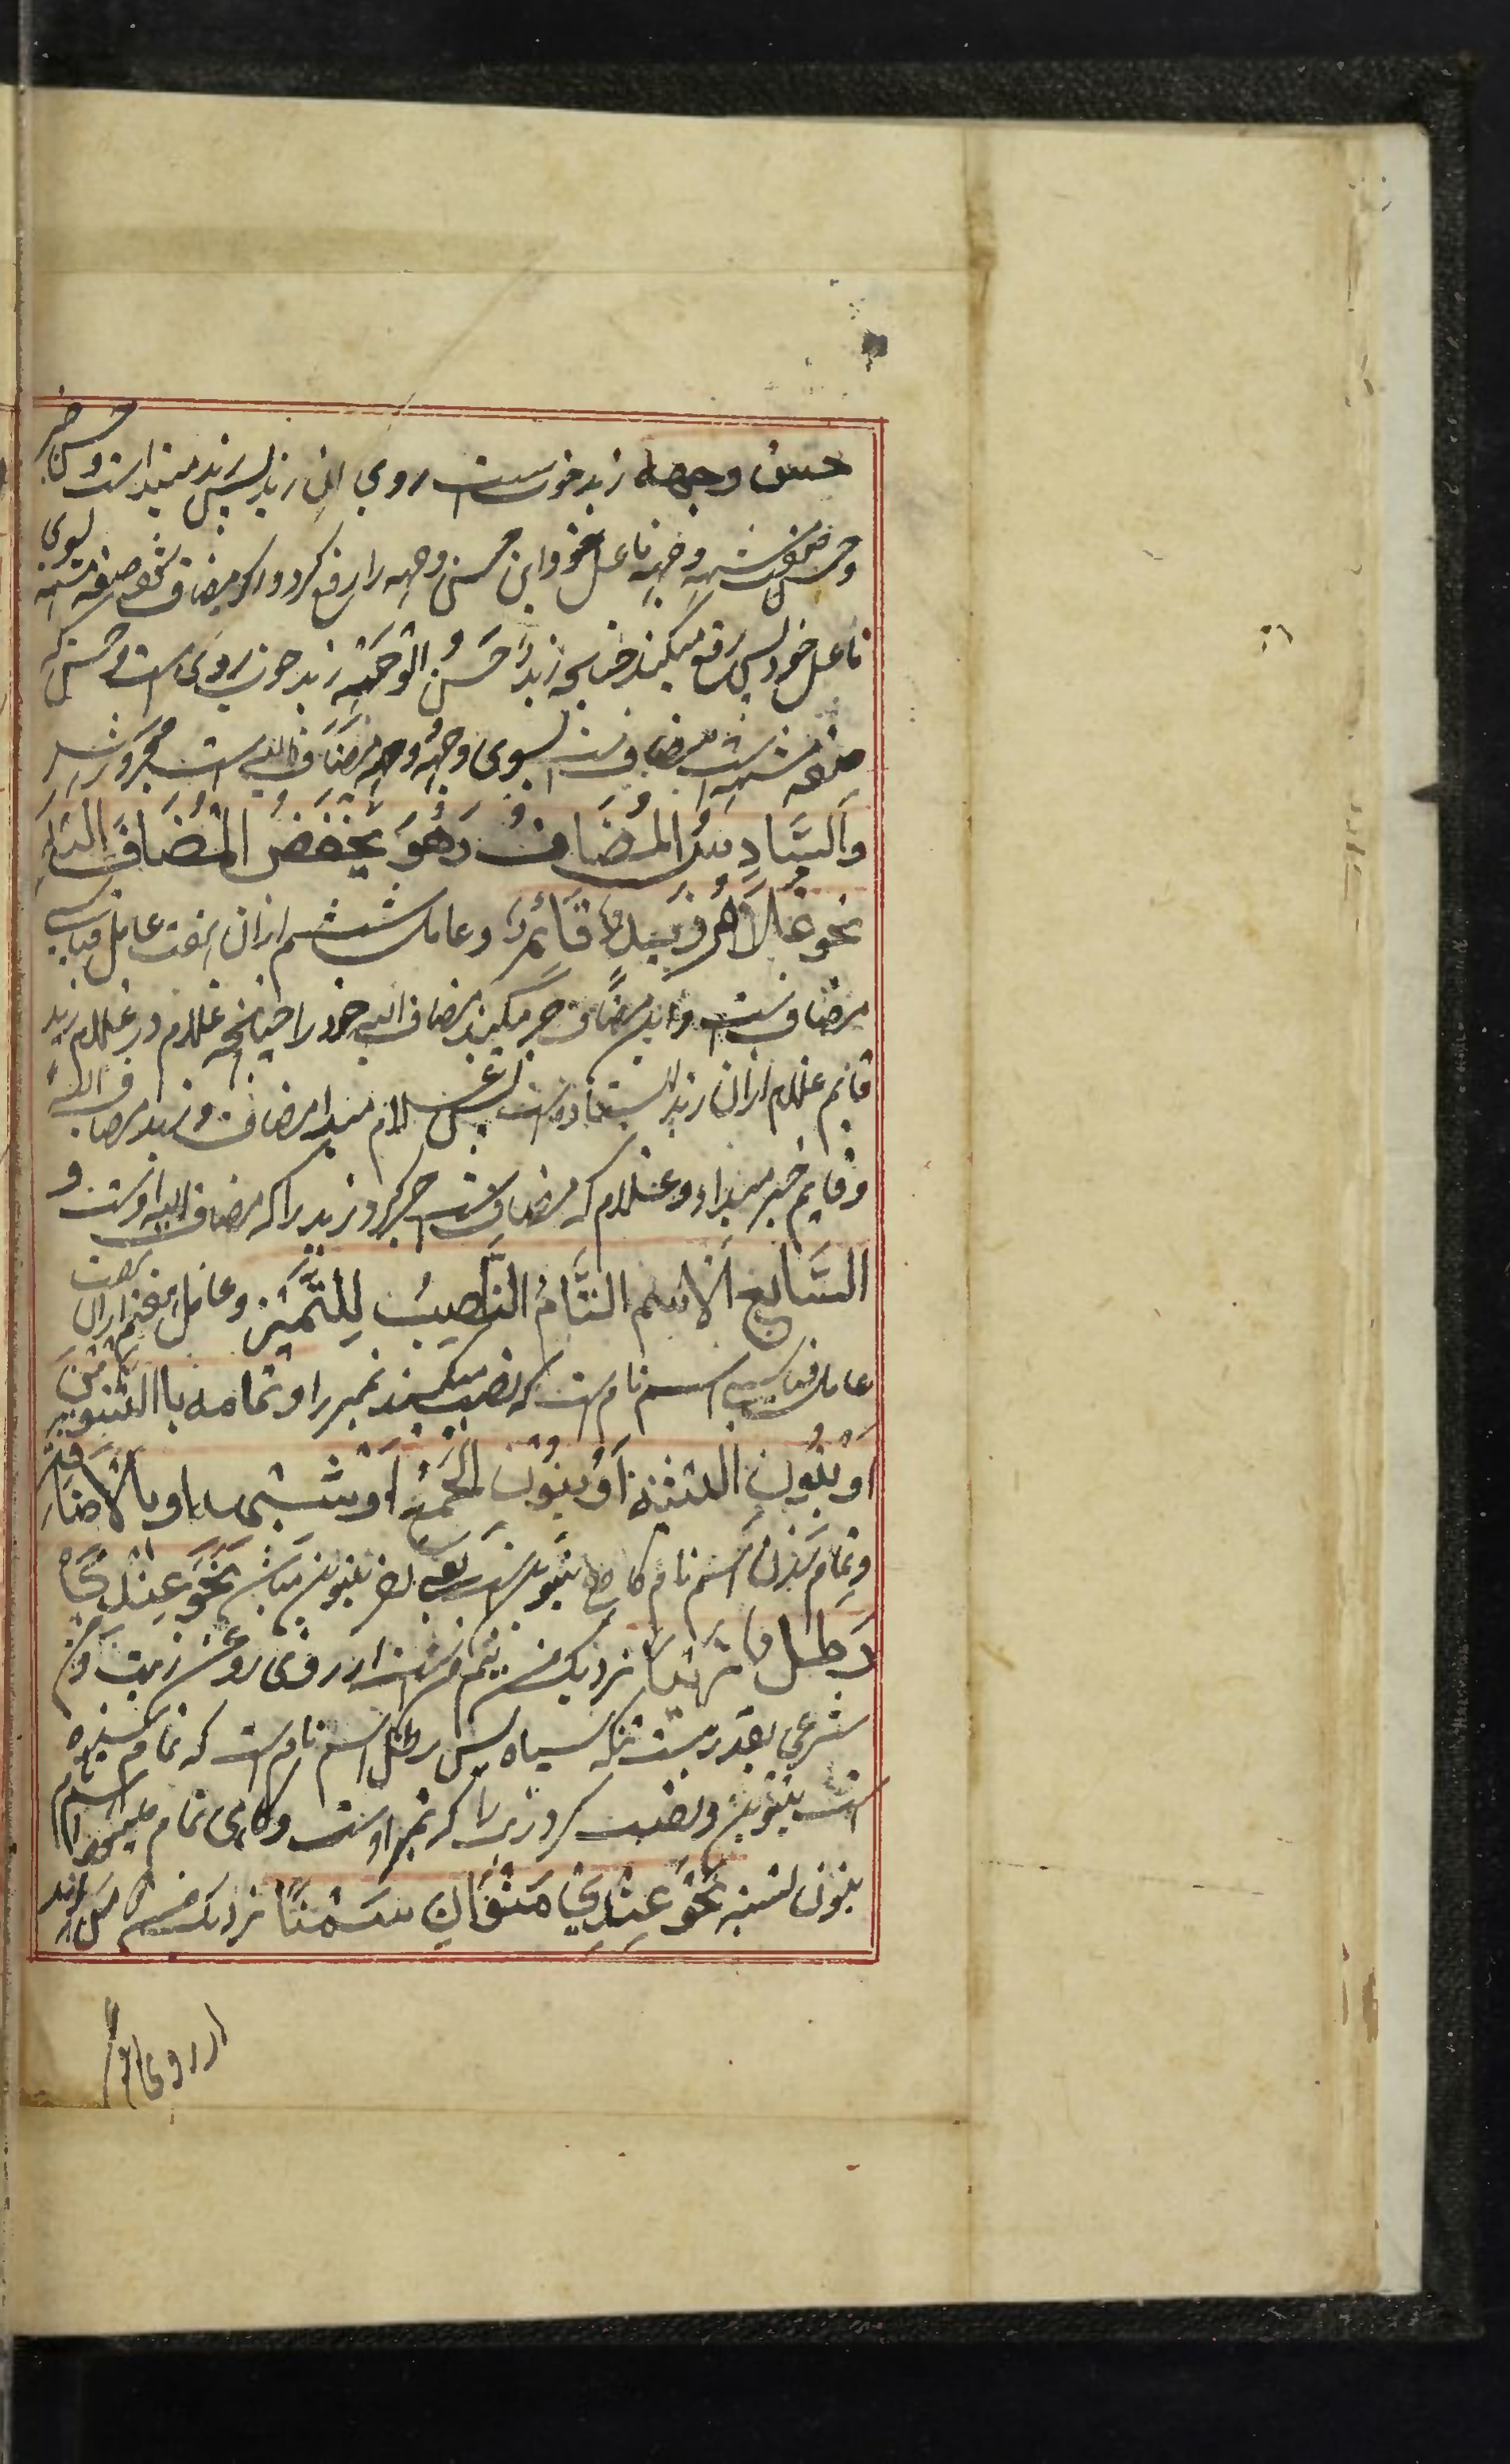 حسن وجهه زید خوب است روی این زید پس زید مبتدا است و حسن خبر
وحسن صفت مشبهه وجهه فاعل خود و این حسن وجهه را رفع کرد و اگر مضاف شود صفت مشبهه بسوی
فاعل خود پس رفع میکند چنانچه زیدٌ حَسَنُ الْوَجْهِ زید خوب روی است و حسن که
صفت مشبهه است مضاف است بسوی وجه و وجه مضاف الیه است مجرور شد
وَالسَّادِسُ الْمُضَافُ وَهُوَ يَخْفِضُ الْمُضَافَ اِلَيْهِ
نحو غُلَامُ زَيْدٍ قَائِمٌ وعامل ششم ازان هفت عامل قیاسی
مضاف است و این مضاف جر میکند مضاف الیه خود را چنانچه غلام در غلام زید
قایم غلام ازان زید استاده است پس غلام مبتدا مضاف و زید مضاف الیه
وقایم خبر مبتدا و غلام که مضاف است جر کرد زید را که مضاف الیه اوست و
السَّابِعُ اَلْاِسْمُ التَّامُّ النَّاصِبُ لِلتَّمْيِيزِ وعامل هفتم ازان هفت
عامل قیاسی اسم تام است که نصب میکند تمیز را وتمامه باالتنوین
اَوْ بِنُونِ التثنیة اَوْ بِنُوْنِ الْجَمْعِ اَوْ شبهه او بالاضافة
وتمام شدن اسم تام گاهی بتنوین است یعنی نحو عِنْدِیْ
رطل زیتا نزدیک من نیم من است از روی روغن زیت و من
شرعی بقدر بیست تنکه سیاه پس رطل اسم تام است که تمام شده
است بتنوین و نصب کرد زیتا که تمیز اوست و گاهی تمام میشود اسم تام
بنون تثنیه نحو عِنْدِیْ مَنَوَانِ سَمْنًا نزدیک من
از روی